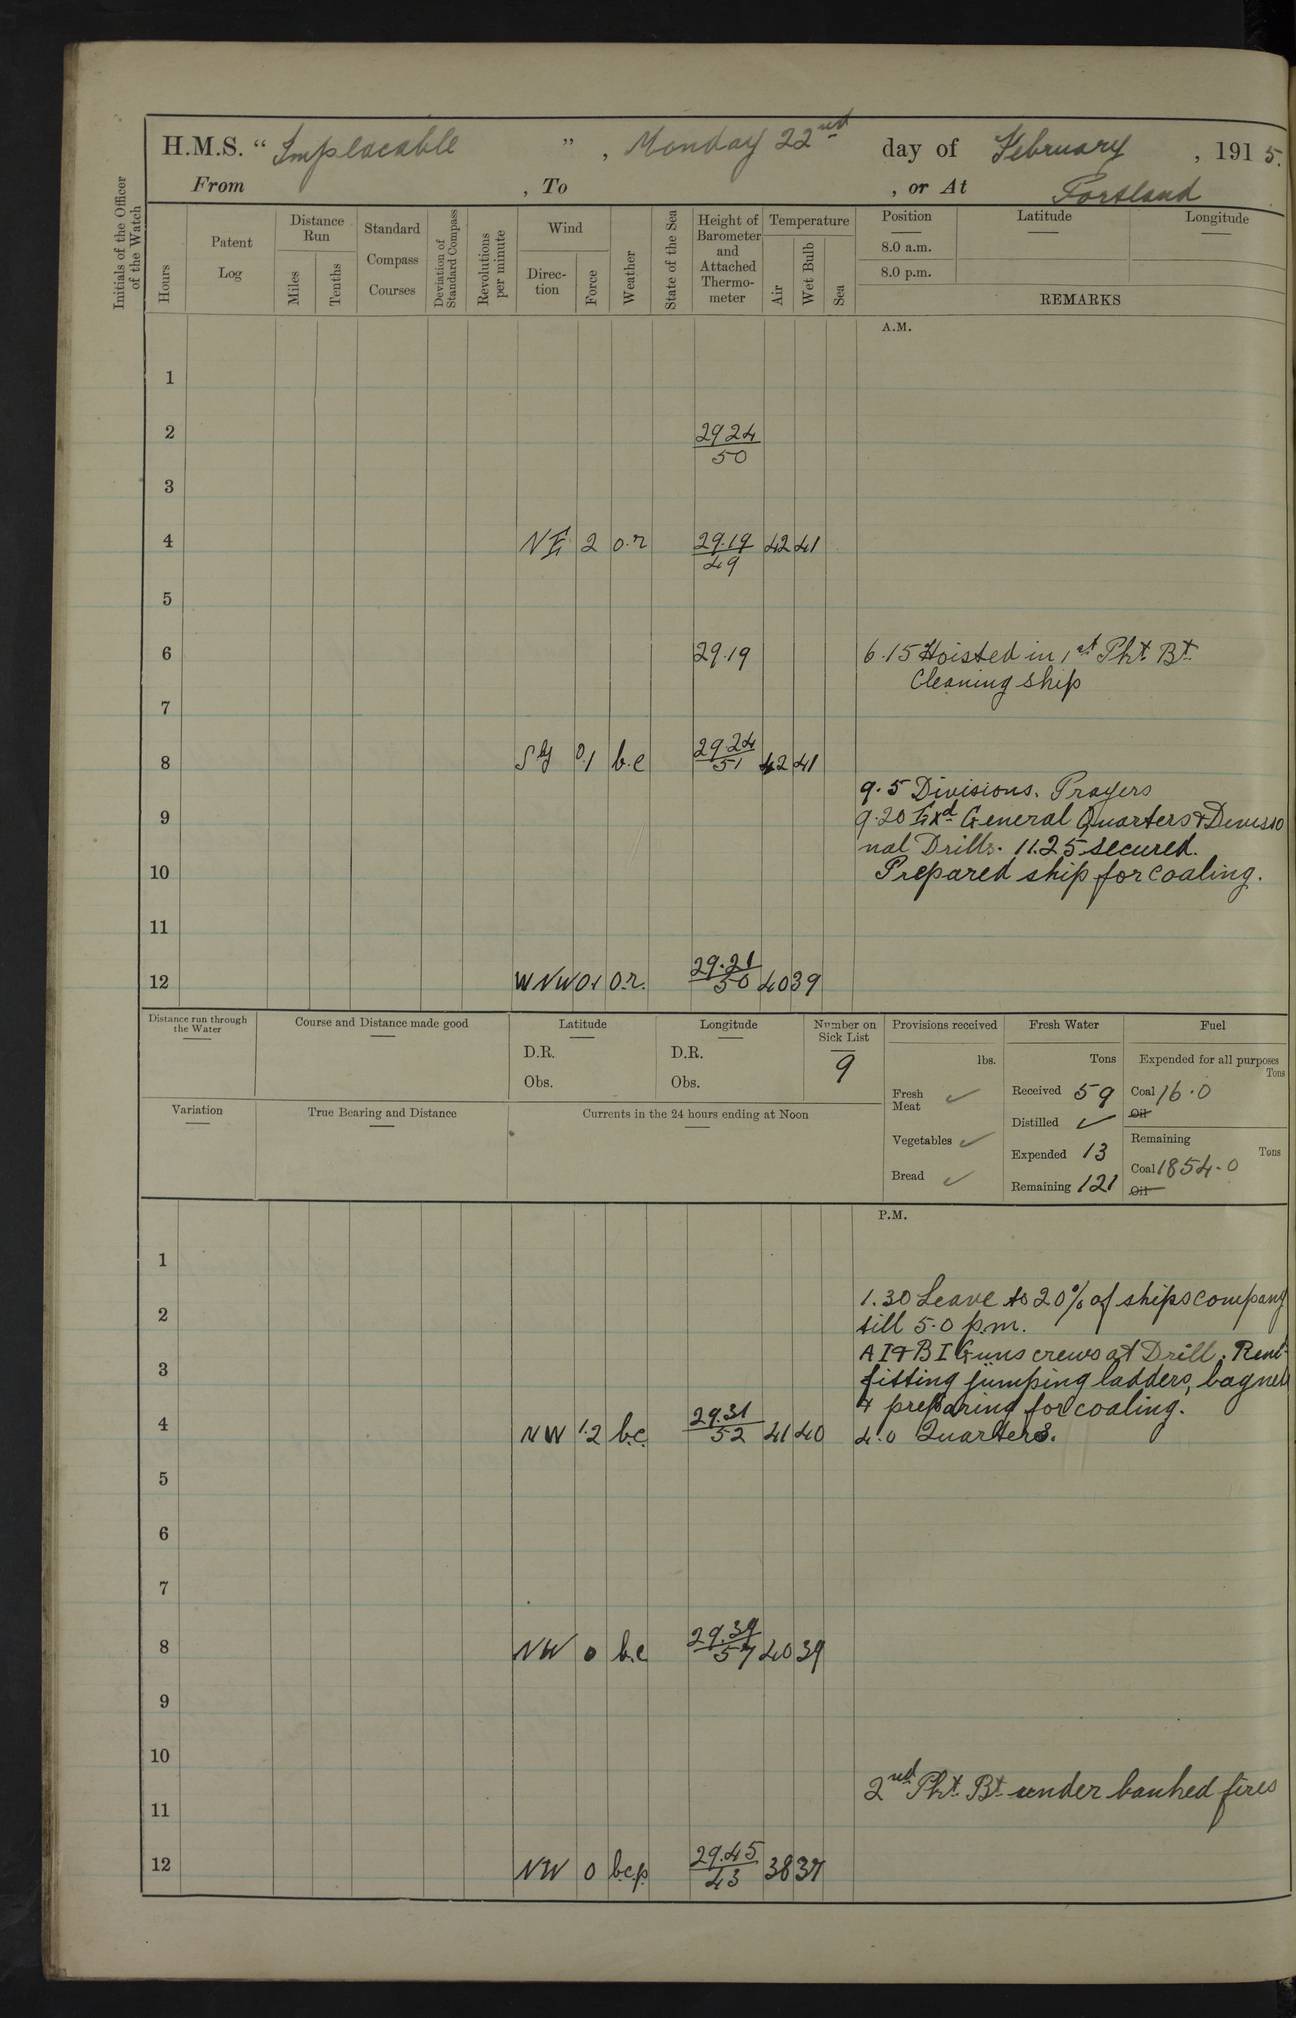 H.M.S. “ Implacable ” , Monday 22nd day of February , 1915.
From , To , or At Portland
Initials of the Officer of the Watch
Hours
Patent Log
Distance Run
Miles
Tenths
Standard Compass Courses
Deviation of Standard Compass
Revolutions per minute
Wind
Direc-tion
Force
Weather
State of the Sea
Height of Barometer and Attached Thermo-meter
Temperature
Air
Wet Bulb
Sea
Position Latitude Longitude
8.0 a.m.
8.0 p.m.
REMARKS
A.M.
1
2 29 24 / 50
3
4 NE 2 o.r 29.19 / 49 42 41
5
6 29.19 6.15 Hoisted in 1st Pkt Bt
Cleaning ship
7
8 Sly 0.1 b.c 29.24 / 51 42 41
9.5 Divisions. Prayers
9 9.20 Exd General Quarters & Divisio
nal Drills. 11.25 secured.
10 Prepared ship for coaling.
11
12 WNW 0.1 o.r. 29.21 / 50 40 39
Distance run through the Water
Course and Distance made good
Latitude
D.R.
Obs.
Longitude
D.R.
Obs.
Number on Sick List
9
Provisions received
lbs.
Fresh Meat ✓
Vegetables ✓
Bread ✓
Fresh Water
Tons
Received 59
Distilled ✓
Expended 13
Remaining 121
Fuel
Expended for all purposes
Tons
Coal 16.0
Oil
Remaining
Tons
Coal 1854.0
Oil
Variation
True Bearing and Distance
Currents in the 24 hours ending at Noon
P.M.
1
1.30 Leave to 20% of ships company
2 till 5.0 p.m.
A I & B I Guns crews at Drill.
3 fitting jumping ladders,
& preparing for coaling.
4 NW 1.2 b.c. 29.31 / 52 41 40 4.0 Quarters.
5
6
7
8 NW 0 b.c 29.39 / 57 40 39
9
10
2nd Pkt Bt under banked fires
11
12 NW 0 b.c.p. 29.45 / 43 38 37